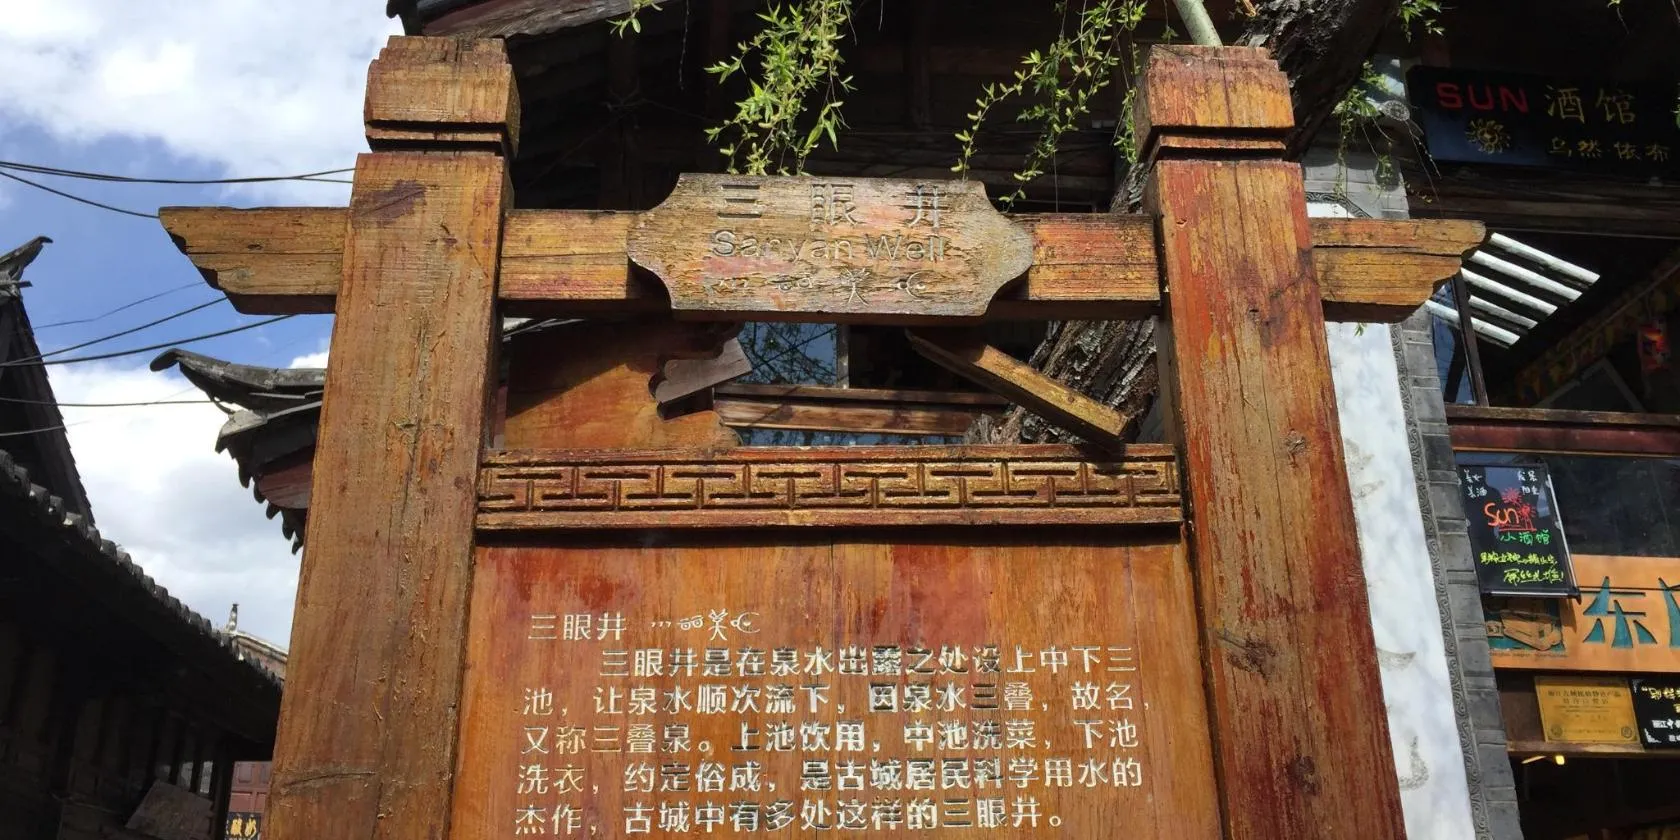 三眼井
Sanyan Well
三眼井
三眼井是在泉水出露之处设上中下三
池，让泉水顺次流下，因泉水三叠，故名，
又称三叠泉。上池饮用，中池洗菜，下池
洗衣，约定俗成，是古城居民科学用水的
杰作，古城中有多处这样的三眼井。
SUN 酒馆
Sun
小酒馆
东